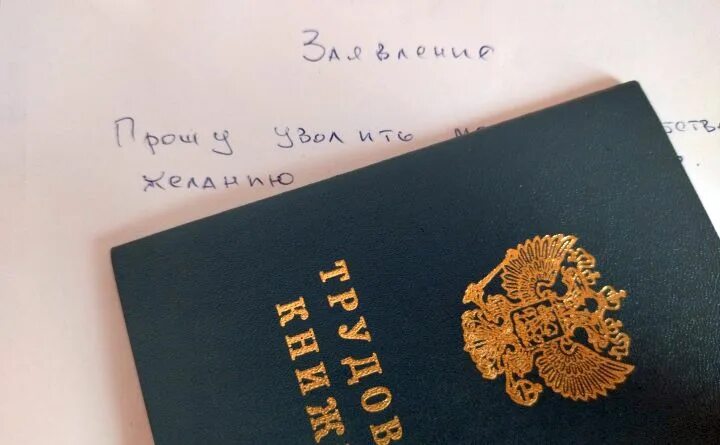 Заявление
Прошу уволить
желанию
ТРУДОВ
КНИЖ